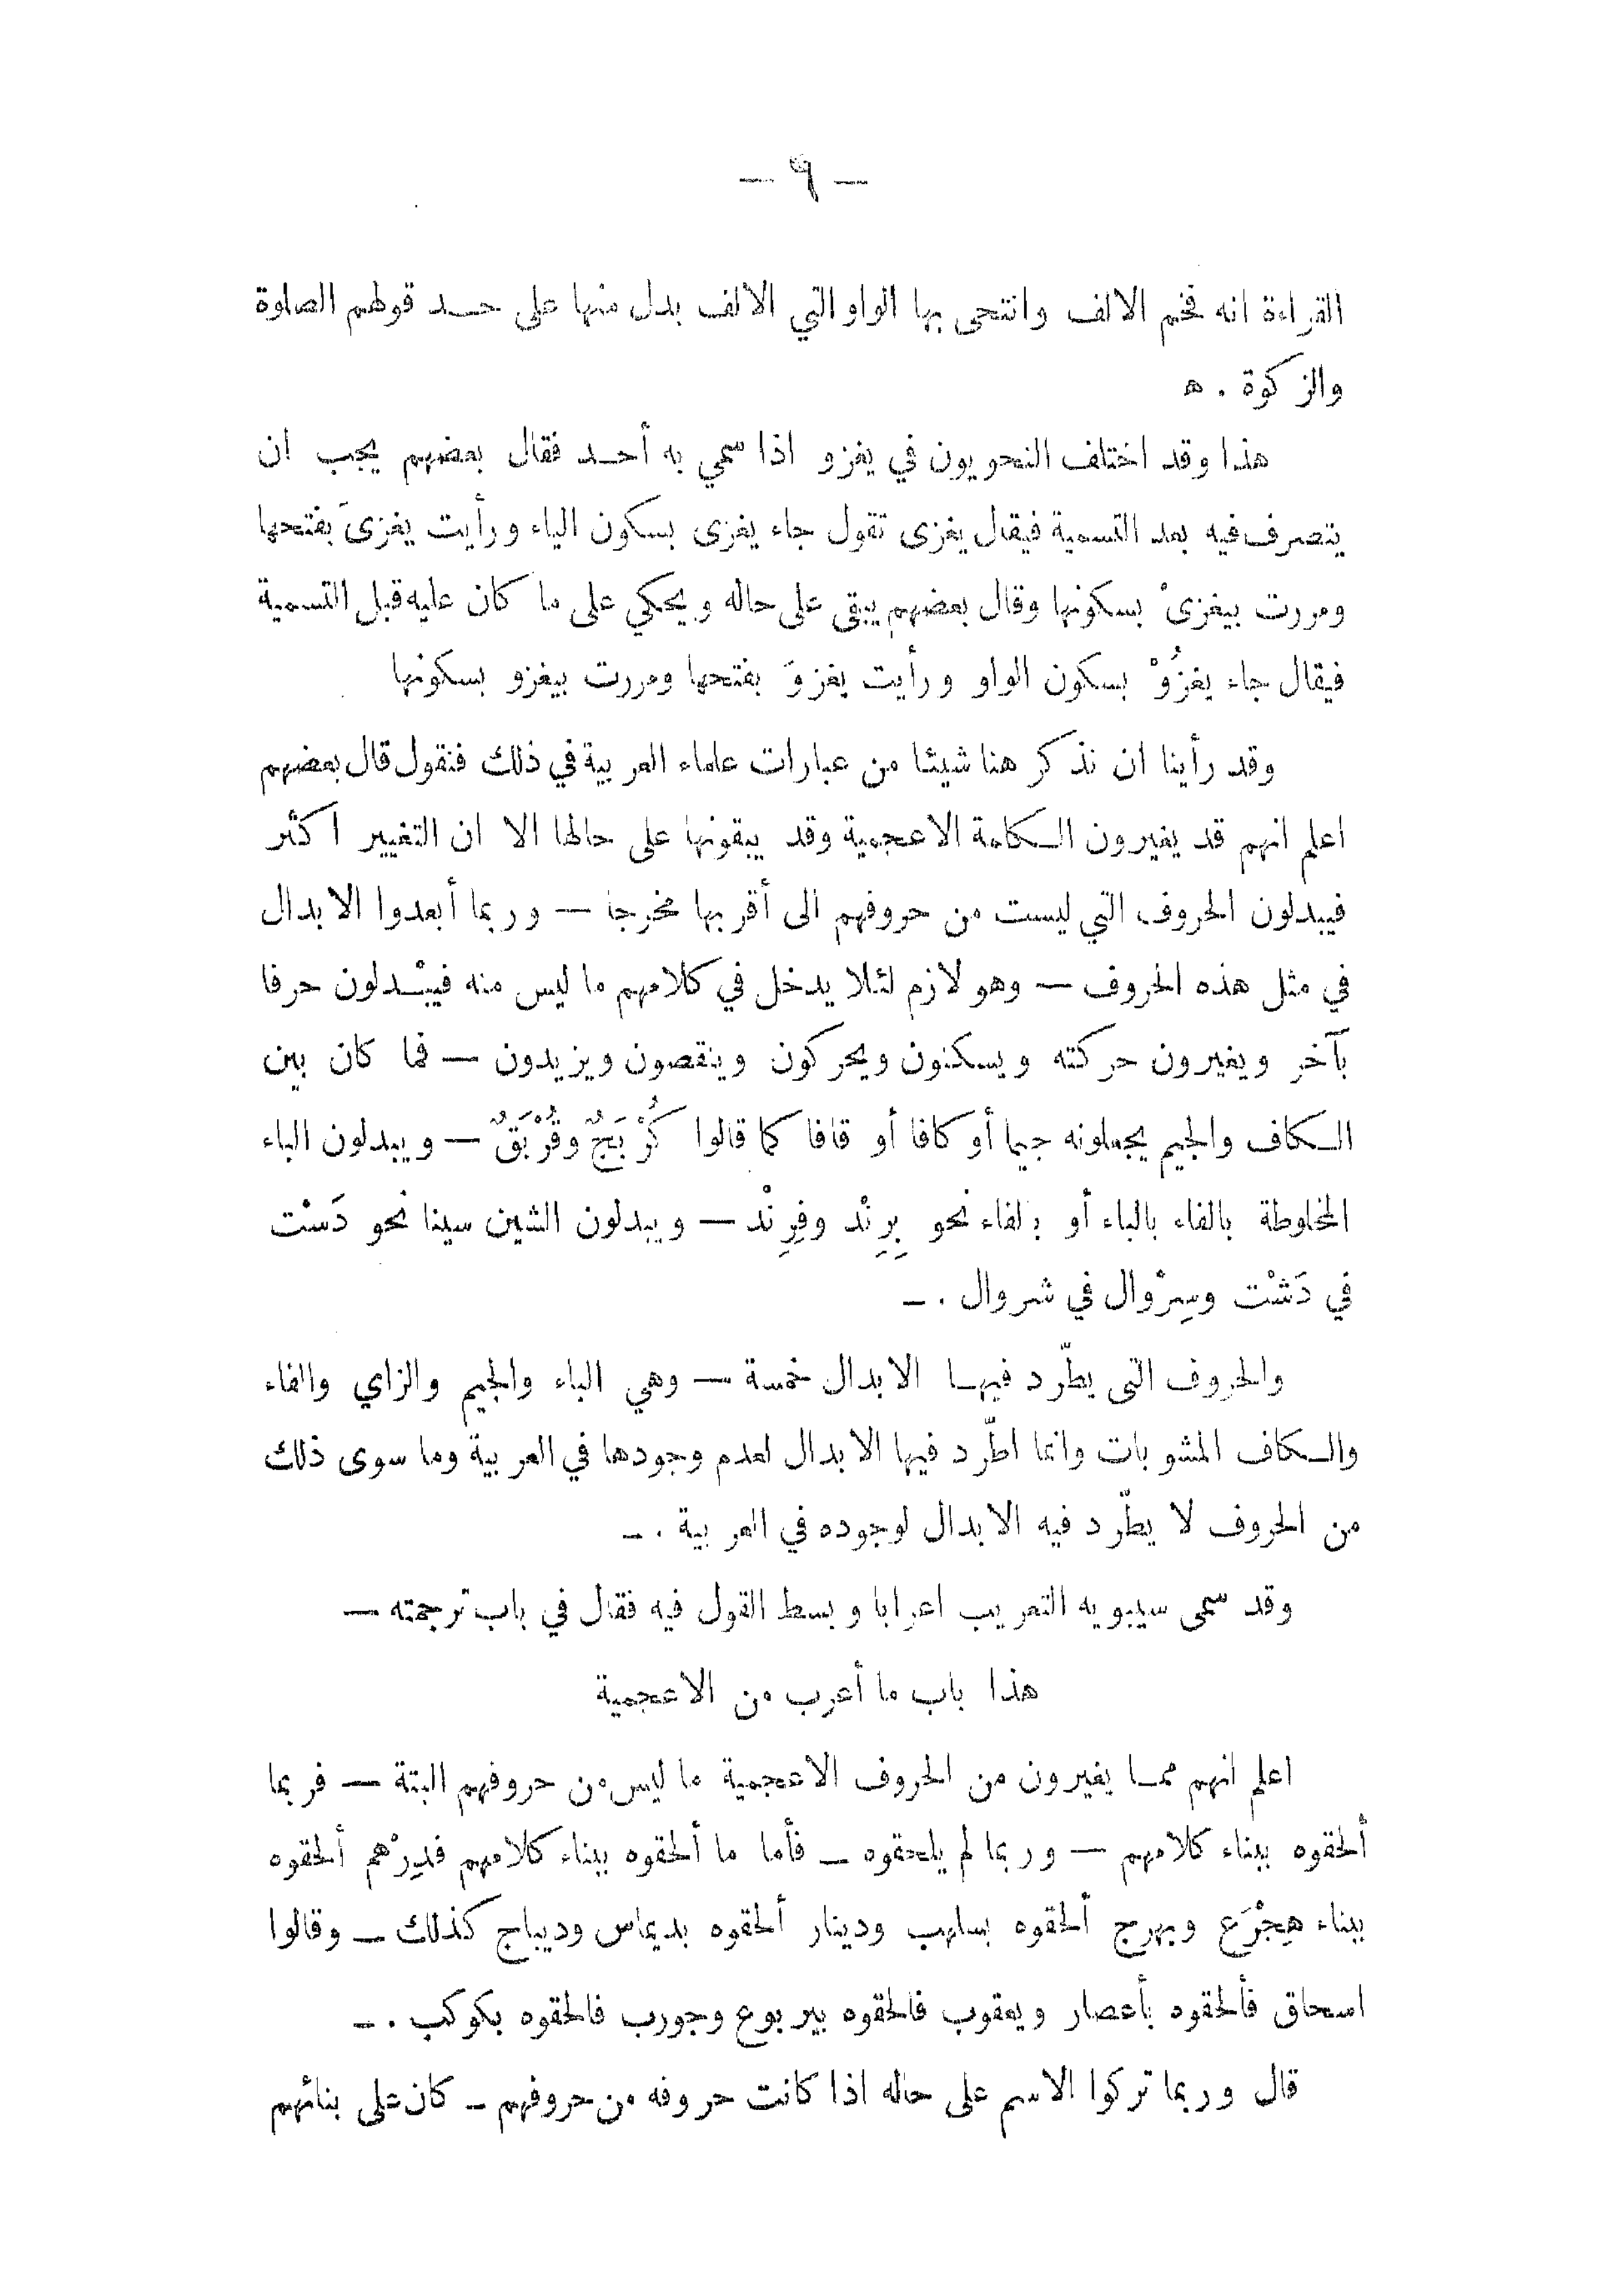 — ٩ —
القراءة انه فخم الالف وانتحى بها الواو التي الالف بدل منها على حد قولهم الصلوة
والزكوة . ه
هذا وقد اختلف النحويون في يغزو اذا سمي به أحد فقال بعضهم يجب ان
يتصرف فيه بعد التسمية فيقال يغزى تقول جاء يغزى بسكون الياء ورأيت يغزىَ بفتحها
ومررت بيغزىْ بسكونها وقال بعضهم يبقى على حاله ويحكي على ما كان عليه قبل التسمية
فيقال جاء يغزُوْ بسكون الواو ورأيت يغزوَ بفتحها ومررت بيغزو بسكونها
وقد رأينا ان نذكر هنا شيئا من عبارات علماء العربية في ذلك فنقول قال بعضهم
اعلم انهم قد يغيرون الكلمة الاعجمية وقد يبقونها على حالها الا ان التغيير اكثر
فيبدلون الحروف التي ليست من حروفهم الى أقربها مخرجا — وربما أبعدوا الابدال
في مثل هذه الحروف — وهو لازم لئلا يدخل في كلامهم ما ليس منه فيبْدلون حرفا
بآخر ويغيرون حركته ويسكنون ويحركون وينقصون ويزيدون — فما كان بين
الكاف والجيم يجعلونه جيما أو كافا أو قافا كما قالوا كُرْبَجٌ وقُرْبَقٌ — ويبدلون الباء
المخلوطة بالفاء بالباء أو بالفاء نحو بِرِنْد وفِرِنْد — ويبدلون الشين سينا نحو دَسْت
في دَشْت وسِرْوال في شروال . —
والحروف التى يطّرد فيها الابدال خمسة — وهي الباء والجيم والزاي والفاء
والكاف المشوبات وانما اطّرد فيها الابدال لعدم وجودها في العربية وما سوى ذلك
من الحروف لا يطّرد فيه الابدال لوجوده في العربية . —
وقد سمى سيبويه التعريب اعرابا وبسط القول فيه فقال في باب ترجمته —
هذا باب ما أعرب من الاعجمية
اعلم انهم مما يغيرون من الحروف الاعجمية ما ليس من حروفهم البتة — فربما
ألحقوه ببناء كلامهم — وربما لم يلحقوه — فأما ما ألحقوه ببناء كلامهم فدِرْهم ألحقوه
ببناء هِجْرَع وبهرج ألحقوه بسلهب ودينار ألحقوه بديماس وديباج كذلك — وقالوا
اسحاق فألحقوه بأعصار ويعقوب فالحقوه بيربوع وجورب فالحقوه بكوكب . —
قال وربما تركوا الاسم على حاله اذا كانت حروفه من حروفهم — كان على بنائهم